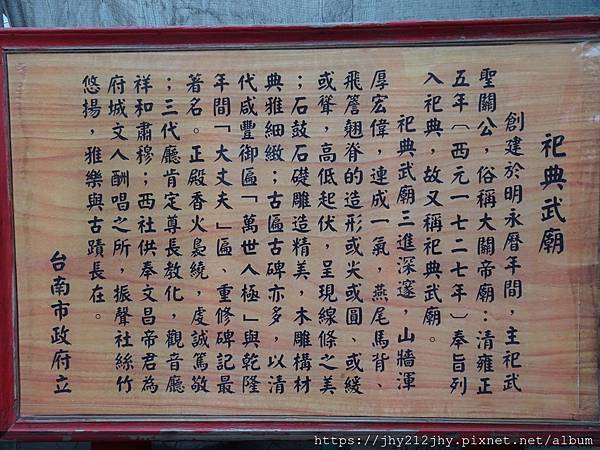 祀典武廟
創建於明永曆年間，主祀武
聖關公，俗稱大關帝廟；清雍正
五年〔西元一七二七年〕奉旨列
入祀典，故又稱祀典武廟。
祀典武廟三進深邃，山牆渾
厚宏偉，連成一氣，燕尾馬背、
飛簷翹脊的造形或尖或圓、或緩
或聳，高低起伏，呈現線條之美
；石鼓石礎雕造精美，木雕構材
典雅細緻；古匾古碑亦多，以清
代咸豐御匾「萬世人極」與乾隆
年間「大丈夫」匾、重修碑記最
著名。正殿香火裊繞，虔誠篤敬
；三代廳肯定尊長教化，觀音廳
祥和肅穆；西社供奉文昌帝君為
府城文人酬唱之所，振聲社絲竹
悠揚，雅樂與古蹟長在。
台南市政府立
https://jhy212jhy.pixnet.net/album